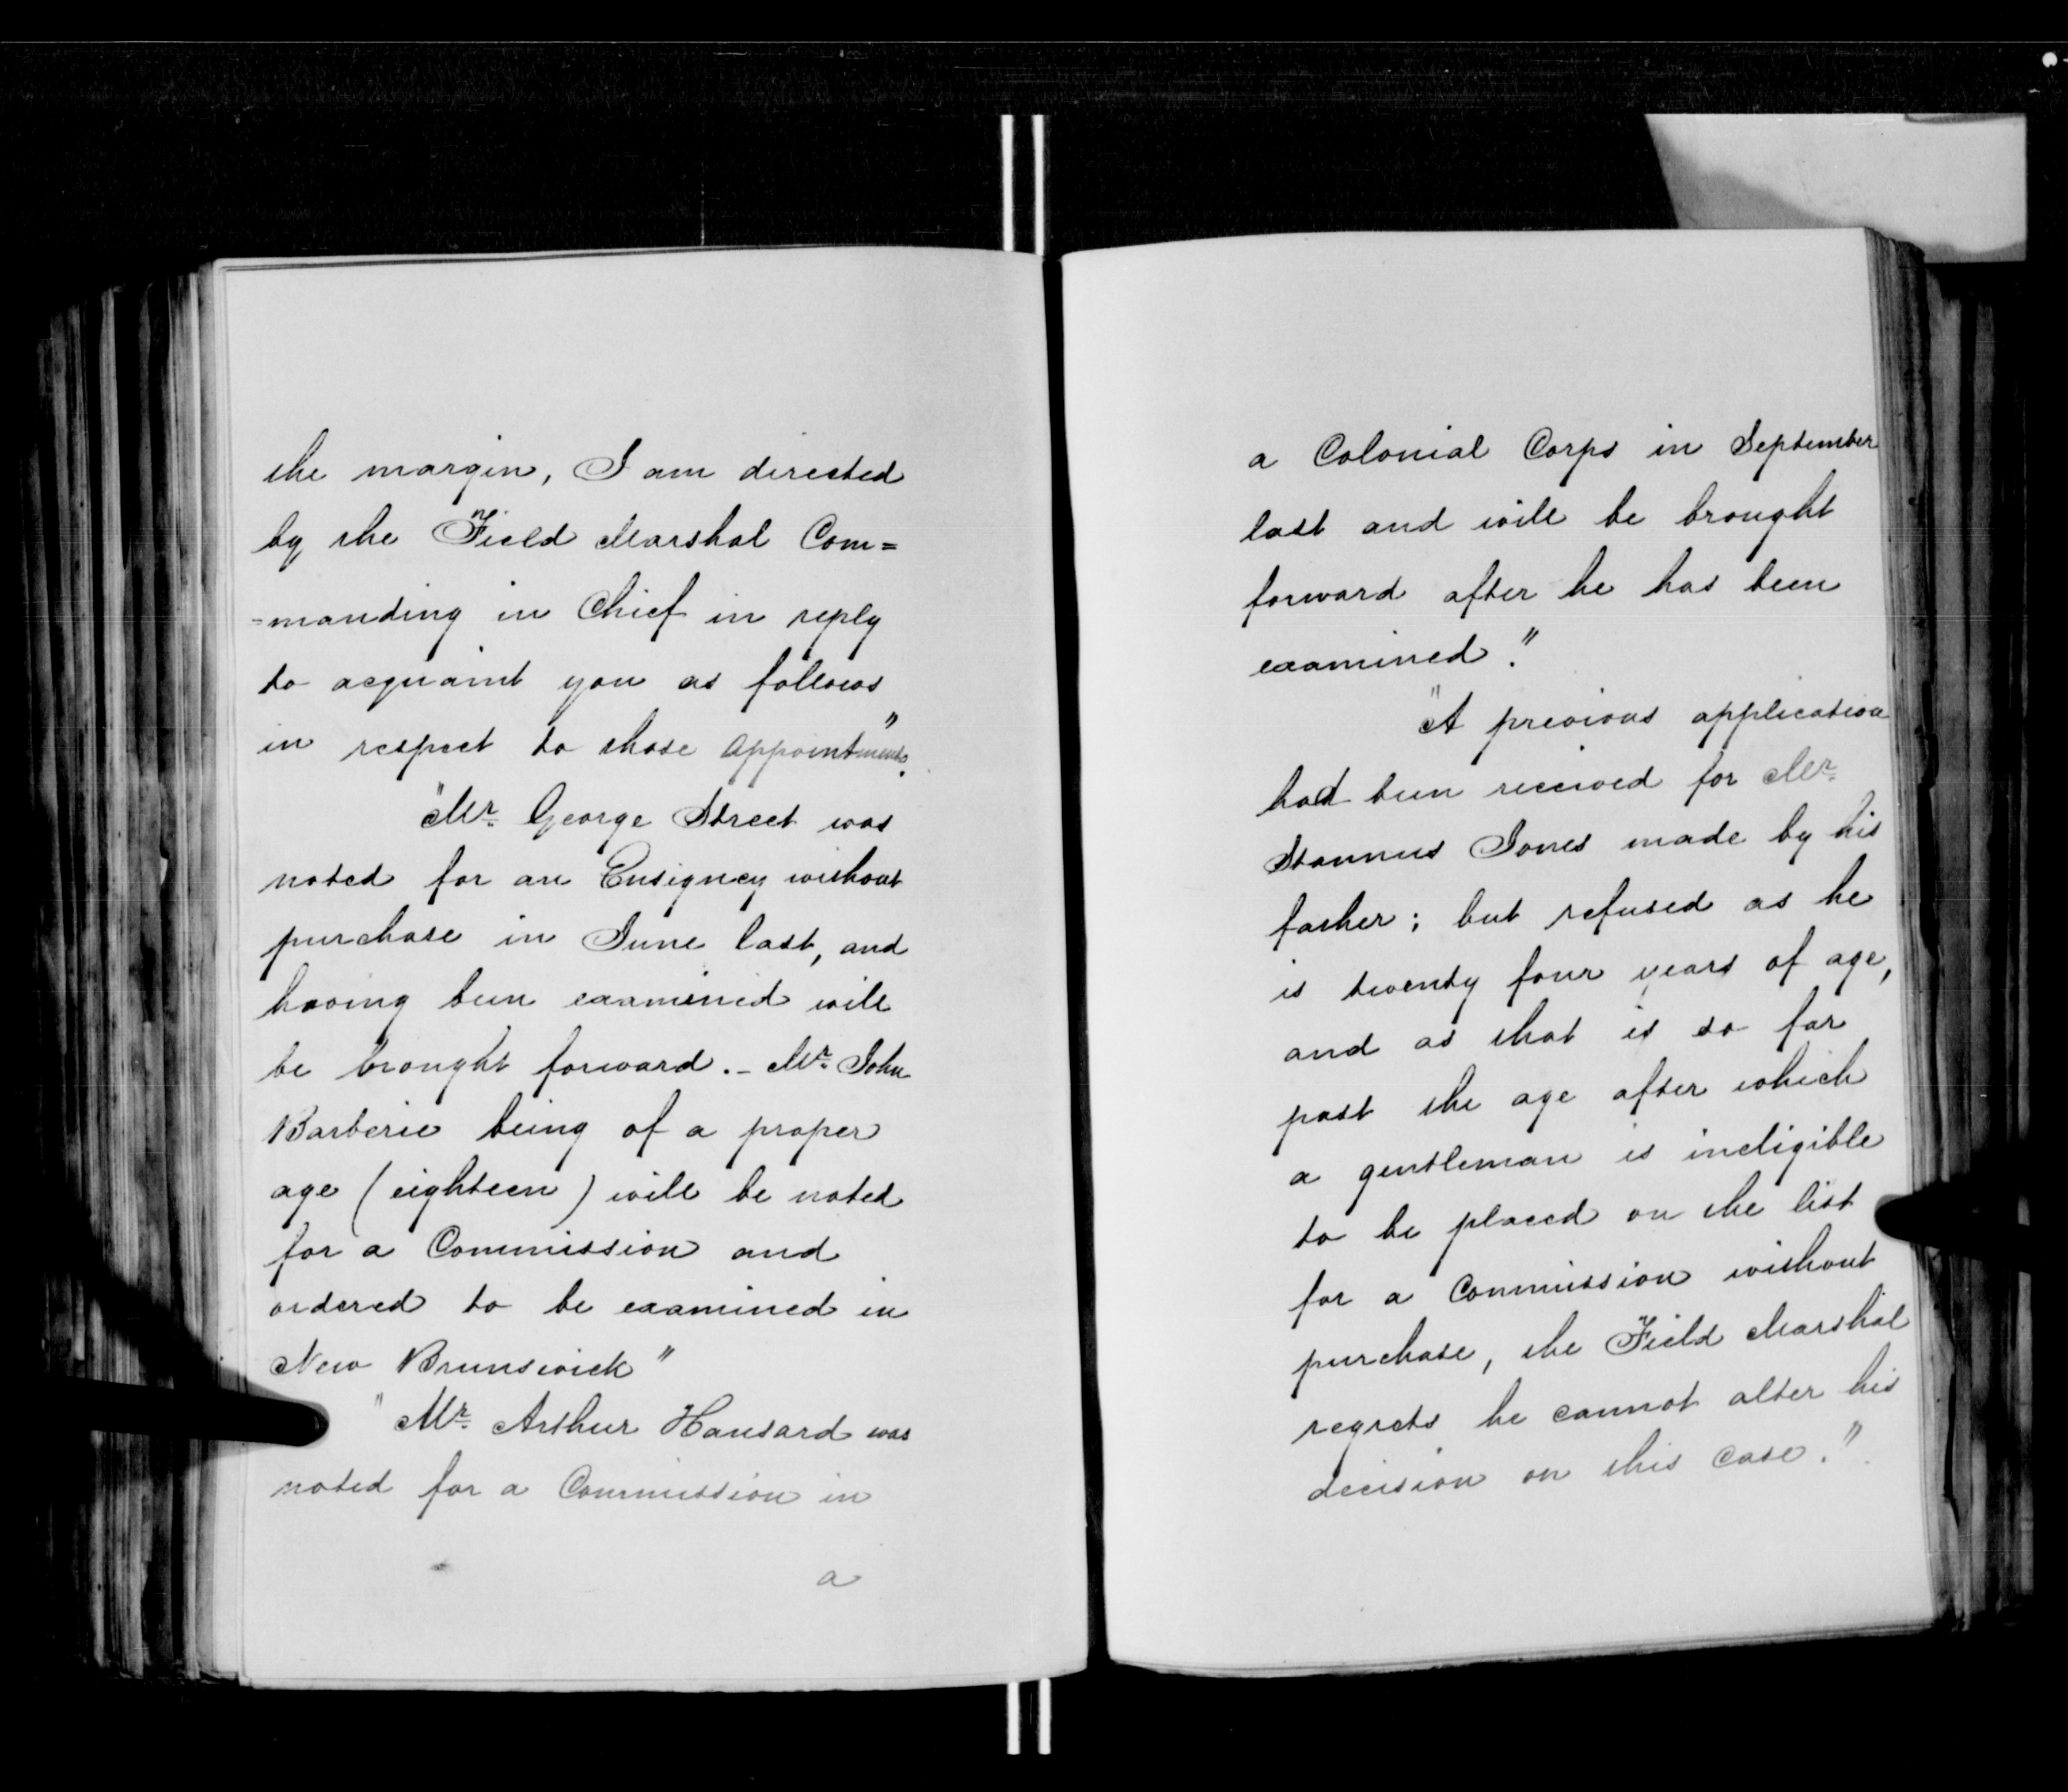 the margin, I am directed
by the Field Marshal Com=
=manding in Chief in reply
to acquaint you as follows
in respect to those appointments."
"Mr. George Street was
noted for an Ensigncy without
purchase in June last, and
having been examined will
be brought forward._ Mr. John
Barberie being of a proper
age (eighteen) will be noted
for a Commission and
ordered to be examined in
New Brunswick"
"Mr. Arthur Hansard was
noted for a Commission in
a
a Colonial Corps in September
last and will be brought
forward after he has been
examined."
"A previous application
had been received for Mr.
Stannus Jones made by his
father; but refused as he
is twenty four years of age,
and as that is so far
past the age after which
a gentleman is ineligible
to be placed on the list
for a Commission without
purchase, the Field Marshal
regrets he cannot alter his
decision on this case."